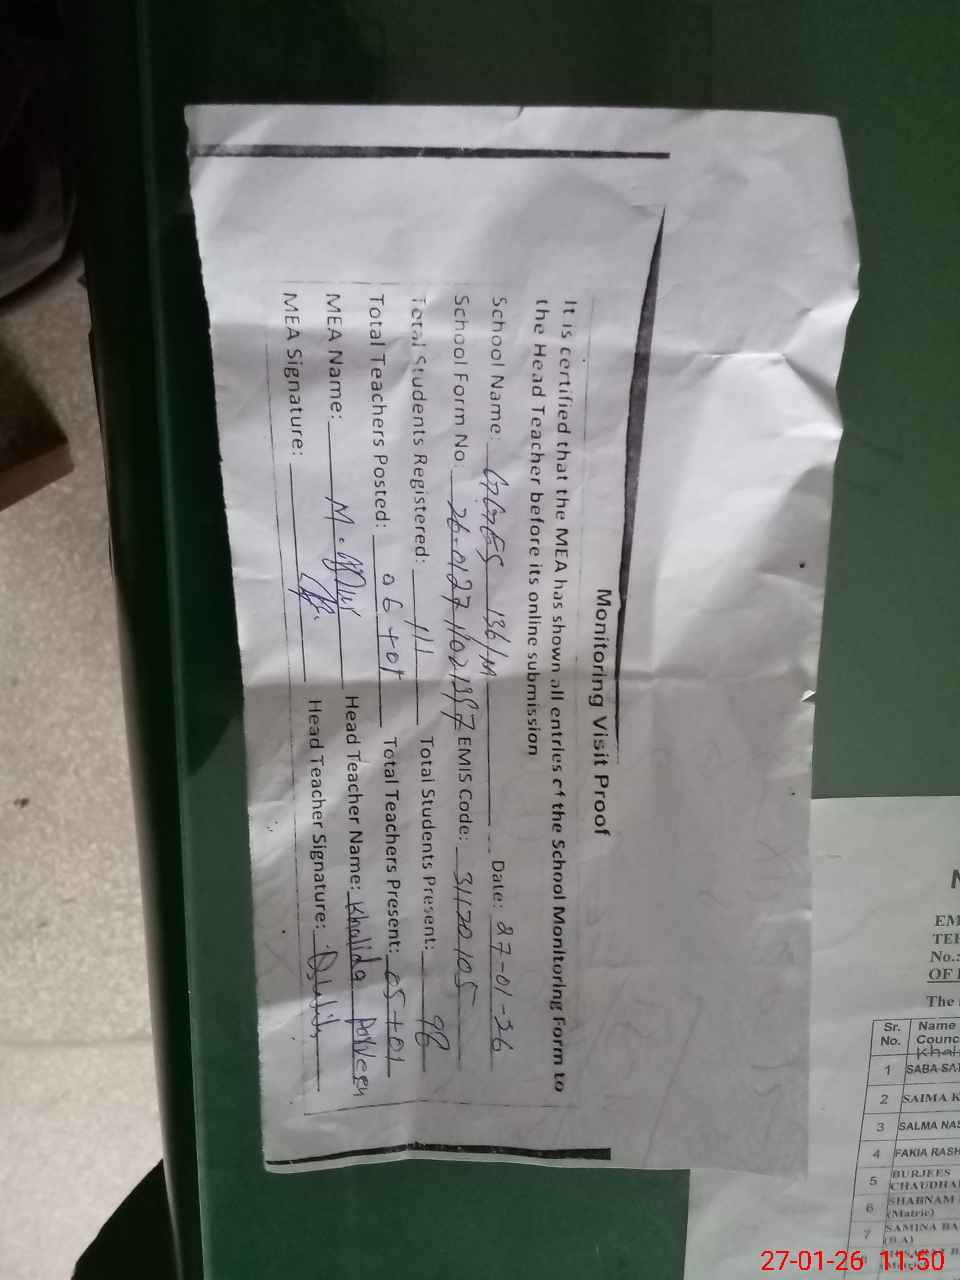 Monitoring Visit Proof
It is certified that the MEA has shown all entries of the School Monitoring Form to
the Head Teacher before its online submission
School Name: GGES 136/M Date: 27-01-26
School Form No: 26-0127-11021397 EMIS Code: 31120105
Total Students Registered: 111 Total Students Present: 98
Total Teachers Posted: 06+01 Total Teachers Present: 05+01
MEA Name: M. Head Teacher Name: Khalida Parveen
MEA Signature: Head Teacher Signature:
EM
TEH
No.:
OF
The
Sr. No. Name
Counc
Khal
1 SABA SA
2 SAIMA K
3 SALMA NAS
4 FAKIA RASH
5 BURJEES
CHAUDHA
6 SHABNAM
(Matric)
7 SAMINA BA
(B.A)
27-01-26 11:50